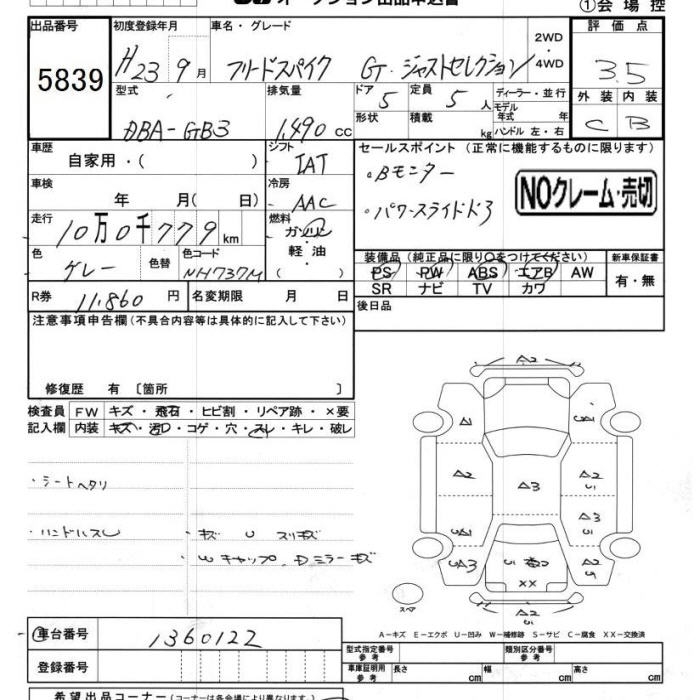 ①会場控
出品番号 初度登録年月 車名・グレード 2WD 4WD 評価点
5839 H23 9月 フリードスパイク GT・ジャストセレクション 3.5
型式 排気量 ドア 定員 ディーラー・並行 外装 内装
DBA-GB3 1,490 cc 5 5人 モデル年式 年 C B
形状 積載 kg ハンドル 左・右
車歴 自家用・( ) シフト IAT セールスポイント (正常に機能するものに限ります)
車検 年 月(日) 冷房 AAC ・Bモニター NOクレーム・売切
走行 10万0千779km 燃料 ガソリン ・パワースライドド3
軽油 ( )
色 グレー 色替 色コード NH737M
装備品 (純正品に限り○をつけてください) 新車保証書
PS PW ABS エアB AW 有・無
SR ナビ TV カワ
R券 11,860円 名変期限 月 日 後日品
注意事項申告欄(不具合内容等は具体的に記入して下さい)
修復歴 有 〔箇所 〕
検査員 FW キズ・飛石・ヒビ割・リペア跡・×要
記入欄 内装 キズ・汚D・コゲ・穴・スレ・キレ・破レ
・シートヘタリ
・ハンドルスレ ・キズ U スリキズ
・Wキャップ、Dミラーキズ
A2
A1
A2 A3 A2
U1
A3
U2
XX
スペア
A−キズ E−エクボ U−凹み W−補修跡 S−サビ C−腐食 XX−交換済
車台番号 1360122
型式指定番号 参考 類別区分番号 参考
登録番号 車庫証明用 参考 長さ cm 幅 cm 高さ cm
希望出品コーナー(コーナーは各会場により異なります)